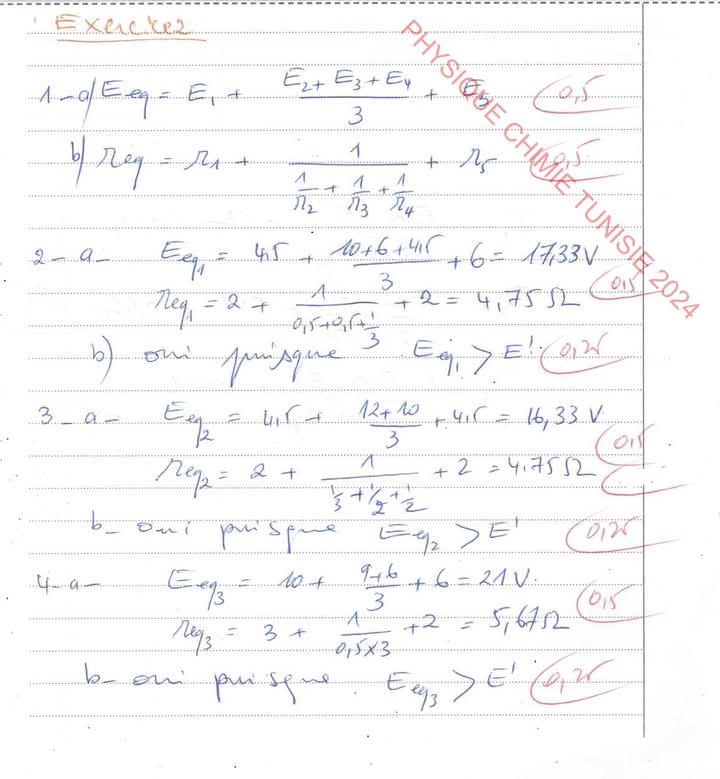 Exercice 2
1-a/ Eeq = E1 + (E2 + E3 + E4)/3 + E5 0,5
b/ req = r1 + 1/(1/r2 + 1/r3 + 1/r4) + r5 0,5
2-a- Eeq1 = 4,5 + (10+6+4,5)/3 + 6 = 17,33 V
req1 = 2 + 1/(0,5+0,5+1/3) + 2 = 4,75 Ω 0,5
b) oui puisque Eeq1 > E' 0,25
3-a- Eeq2 = 4,5 + (12+10)/3 + 4,5 = 16,33 V.
req2 = 2 + 1/(1/3+1/2+1/2) + 2 = 4.75 Ω 0,5
b- oui puisque Eeq2 > E' 0,25
4-a- Eeq3 = 10 + (9+6)/3 + 6 = 21 V.
req3 = 3 + 1/(0,5×3) + 2 = 5,67 Ω 0,5
b- oui puisque Eeq3 > E' 0,25
PHYSIQUE CHIMIE TUNISIE 2024